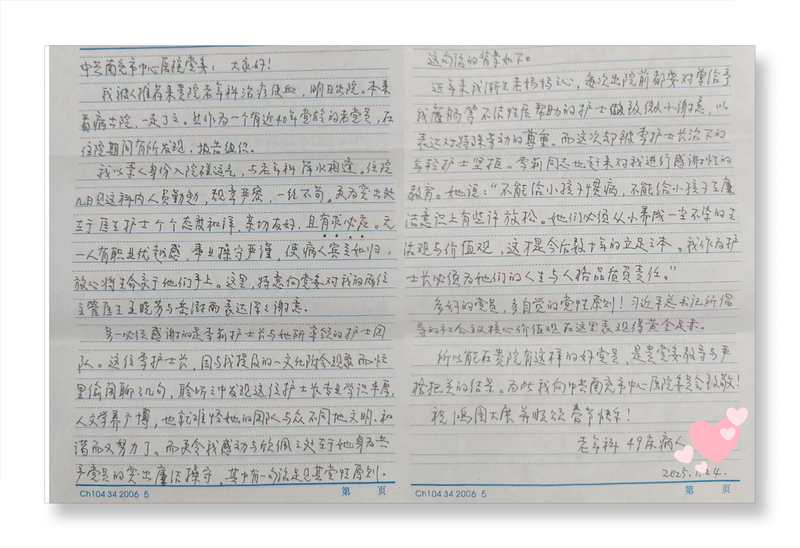 中共南充市中心医院党委：大家好！
我被人推荐来贵院老年科治疗便血，明日出院。本来
看病出院，一走了之。但作为一个有近40年党龄的老党员，在
住院期间有所发现，报告组织。
我以素人身份入院碰运气，与老年科萍水相逢。住院
几日见这科内人员勤劳，规章严密，一丝不苟。更为突出处
在于医生护士个个态度和详，亲切友好，且有求必应。无
一人有职业优越感，事业操守严谨，使病人宾至如归，
放心将生命交于他们手上。这里，特意向党委对我的两位
主管医生王晓芳与岳尉而表达深之谢意。
另一必须感谢的是李莉护士长与她所率领的护士团
队。这位李护士长，因与我提及的一文化附会现象而忙
里偷闲聊了几句，聆听之中发现这位护士长专业学识丰厚，
人文学养广博，也就难怪她的团队与众不同地文明、和
谐而又努力了。而更令我感动与欣佩之处在于她身为共
产党员的突出廉洁操守，其中有一句话足见其党性原则。
Ch104 34 2006 5
第 页
这句话的背景如下。
近年来我渐生老惰之心，每次出院前都要对曾给予
我灌肠等不洁性质帮助的护士做致微小谢意，以
表达对特殊劳动的尊重。而这次却被李护士长治下的
年轻护士坚拒。李莉同志也赶来对我进行感谢性的
教育。她说：“不能给小孩子惯病，不能给小孩子在廉
洁意识上有些许放松。她们必须从小养成一尘不染的生
活观与价值观，这才是今后数十年的立足之本。我作为护
士长必须为她们的人生与人格品质负责任。”
多好的党员，多自觉的党性原则！习近平总书记所倡
导的社会主义核心价值观在这里表现得黄金足赤。
所以能在贵院有这样的好党员，是贵党委教导与严
格把关的结果。为此我向中共南充市中心医院委员会致敬！
祝鸿图大展并顺颂春节快乐！
老年科 49床病人
2025.1.24.
Ch104 34 2006 5
第 页